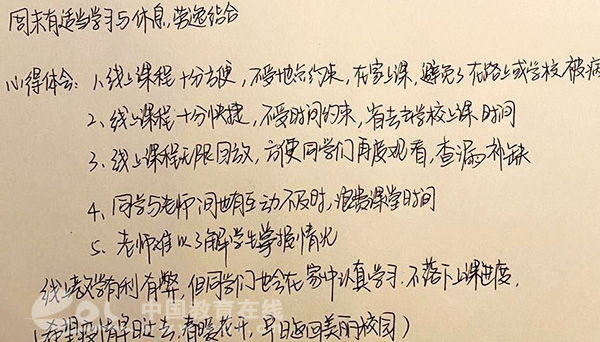 周末有适当学习与休息,劳逸结合
心得体会: 1、线上课程十分方便,不受地点约束,在家上课,避免了在路上或学校被病
2、线上课程十分快捷,不受时间约束,省去去学校上课时间
3、线上课程无限回放,方便同学们再度观看,查漏补缺
4、同学与老师间也有互动不及时,浪费课堂时间
5、老师难以了解学生掌握情况
线上教学有利有弊,但同学们也会在家中认真学习,不落下上课进度,
(希望疫情早日过去,春暖花开,早日返回美丽校园)
中国教育在线